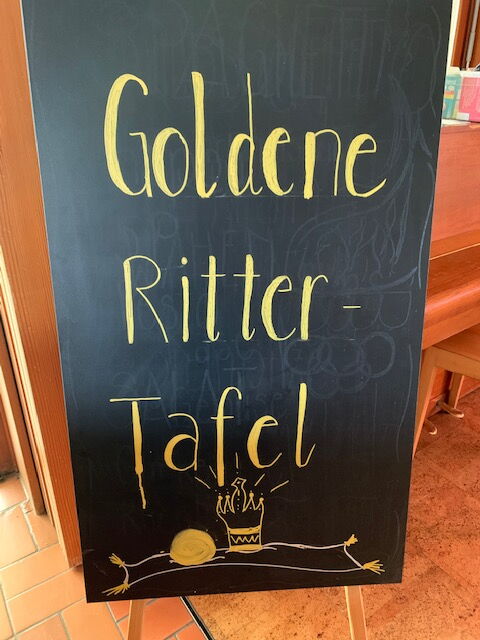 Goldene
Ritter-
Tafel